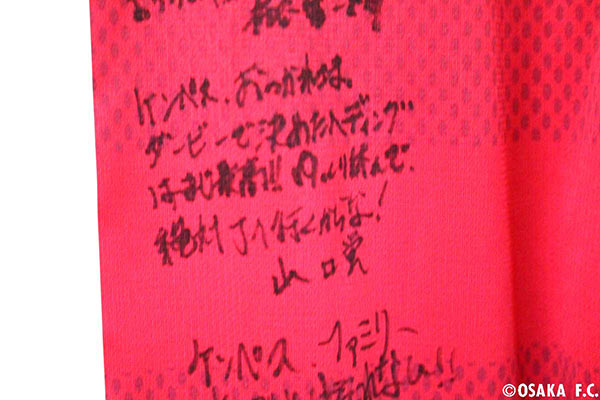 ケンペス、おつかれさま。
ダービーで決めたヘディング
はまじ最高!! ゆっくり休んで。
絶対J1行くからな!
山口蛍
ケンペス、ファミリー
©OSAKA F.C.